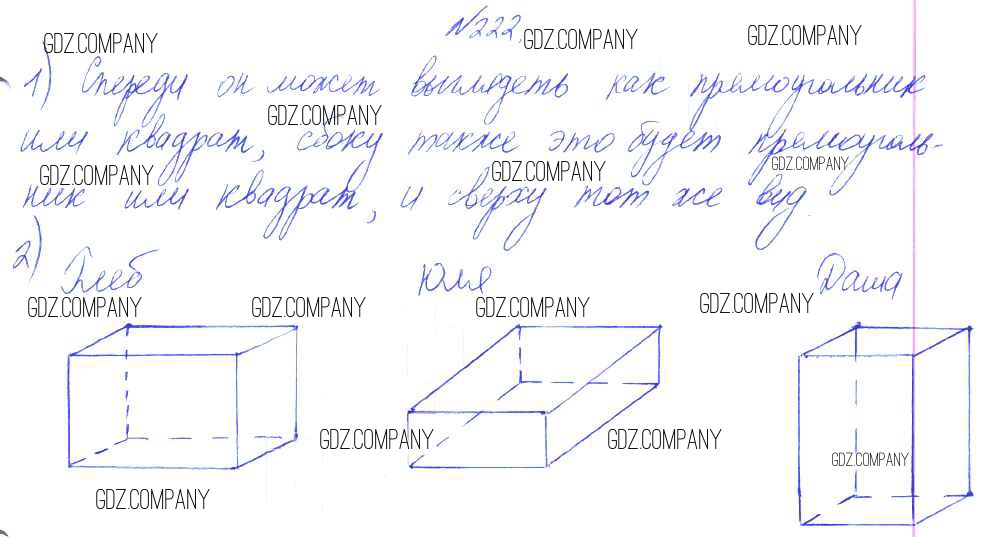 №222.
GDZ.COMPANY GDZ.COMPANY GDZ.COMPANY
1) Спереди он может выглядеть как прямоугольник
GDZ.COMPANY
или квадрат, сбоку также это будет прямоуголь-
GDZ.COMPANY GDZ.COMPANY GDZ.COMPANY
ник или квадрат, и сверху тот же вид.
2) Глеб Юля Даша
GDZ.COMPANY GDZ.COMPANY GDZ.COMPANY GDZ.COMPANY
GDZ.COMPANY GDZ.COMPANY
GDZ.COMPANY
GDZ.COMPANY